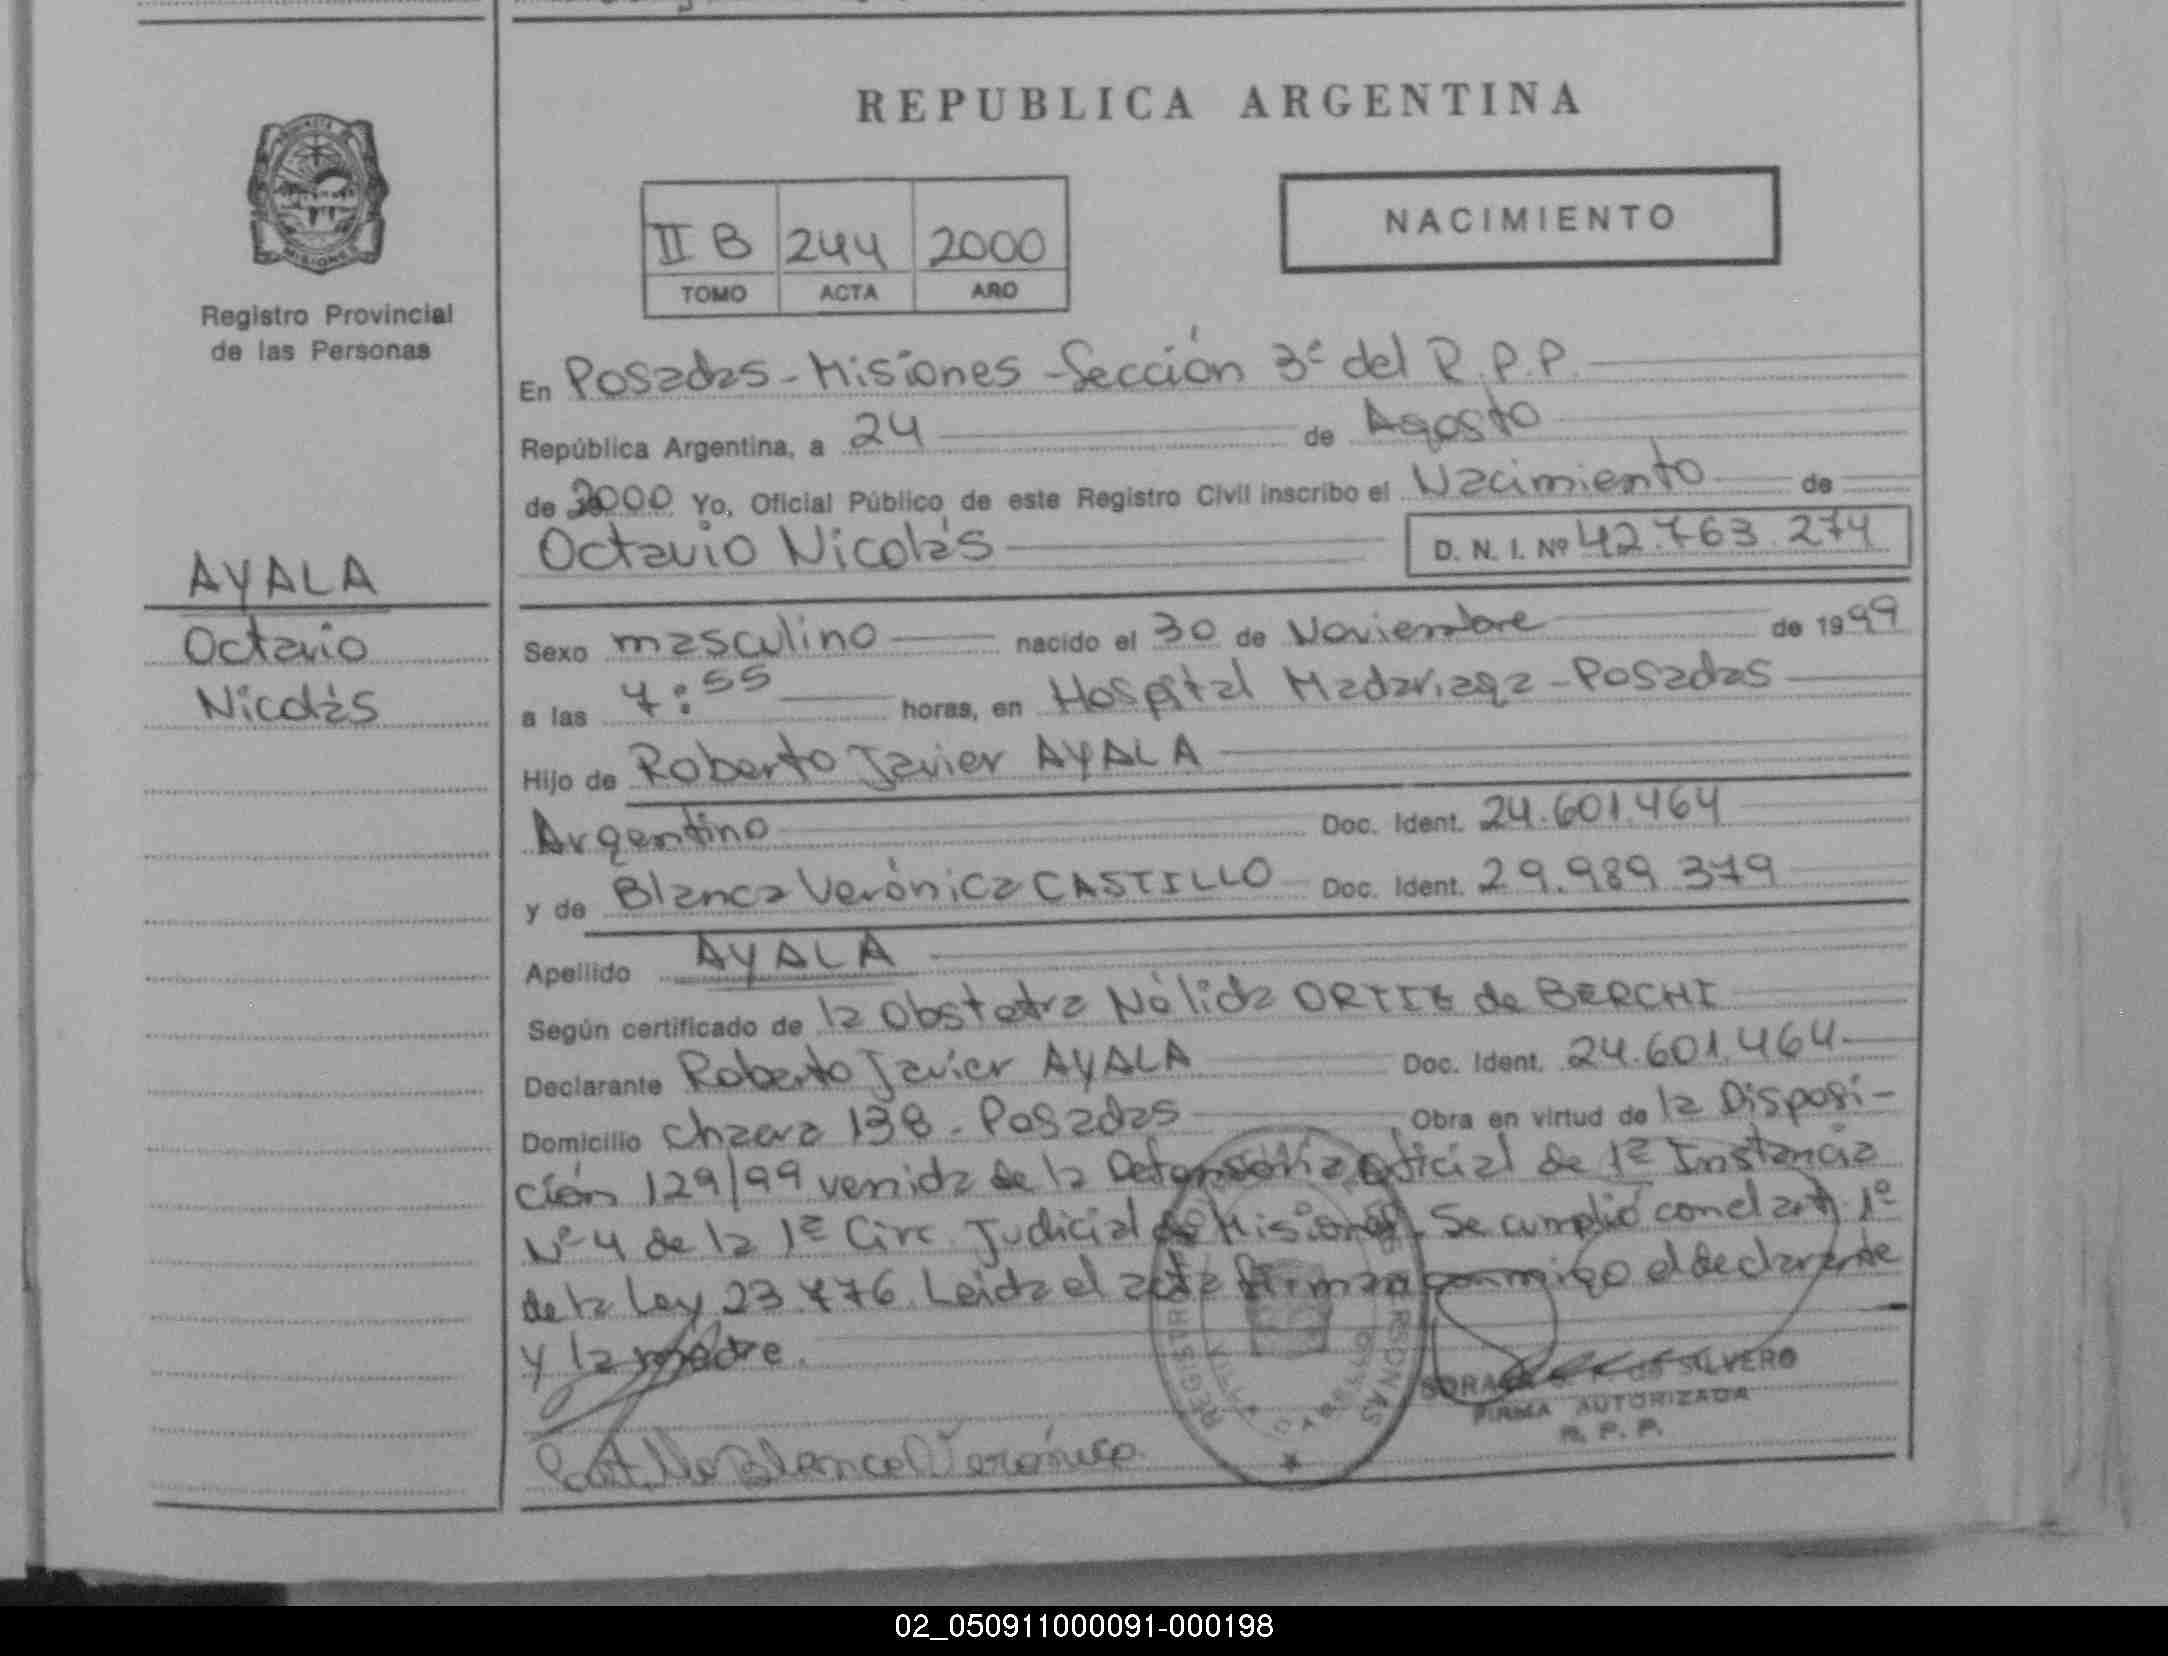 REPUBLICA ARGENTINA
NACIMIENTO
II B 244 2000
TOMO ACTA AÑO
Registro Provincial
de las Personas
AYALA
Octavio
Nicolás
En Posadas - Misiones - Sección 3ª del R.P.P.
República Argentina, a 24 de Agosto
de 2000 Yo, Oficial Público de este Registro Civil inscribo el Nacimiento de
Octavio Nicolás D. N. I. Nº 42.763.274
Sexo masculino nacido el 30 de Noviembre de 1999
a las 7:55 horas, en Hospital Madariaga - Posadas
Hijo de Roberto Javier AYALA
Argentino Doc. Ident. 24.601.464
y de Blanca Verónica CASTILLO Doc. Ident. 29.989.379
Apellido AYALA
Según certificado de la Obstetra Nélida ORTIZ de BERCHI
Declarante Roberto Javier AYALA Doc. Ident. 24.601.464
Domicilio Chacra 138 - Posadas Obra en virtud de la Disposi-
ción 129/99 venida de la Defensoría Oficial de 1ª Instancia
Nº 4 de la 1ª Circ. Judicial de Misiones. Se cumplió con el art. 1º
de la Ley 23.776. Leida el acta firman conmigo el declarante
y la madre.
Castillo Blanca Verónica
DE SILVERO
FIRMA AUTORIZADA
R. P. P.
02_050911000091-000198